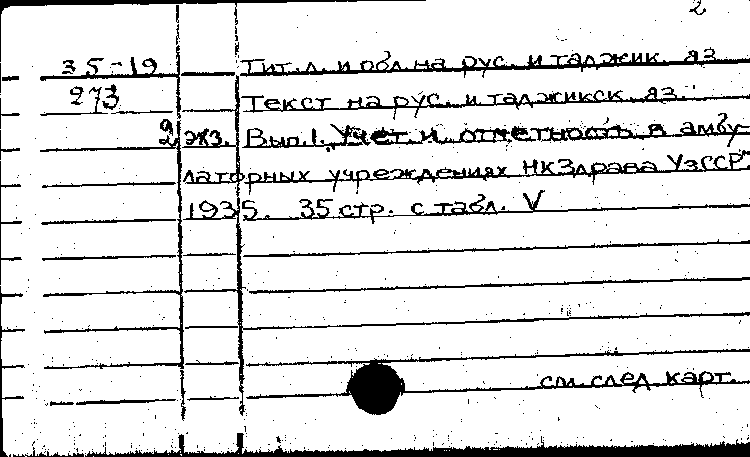 2
35-19 Тит. л. и обл. на рус. и таджик. яз.
273 Текст на рус. и таджикск. яз.
2 экз. Вып. 1. „Учет и отчетность в амбу-
латорных учреждениях НКЗдрава УзССР".
1935. 35 стр. с табл. V
см. след. карт.